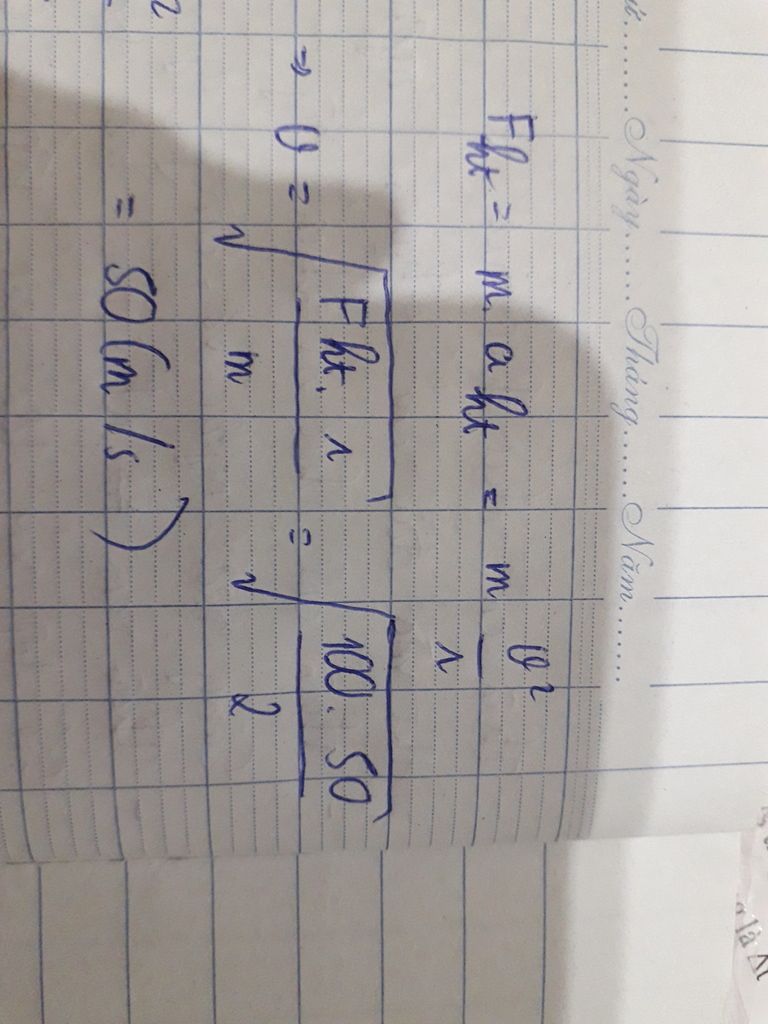 Ngày...... Tháng...... Năm.......
Fht = m.aht = m v²/r
⇒ v = √(Fht.r/m) = √(100.50/2)
= 50 (m/s)